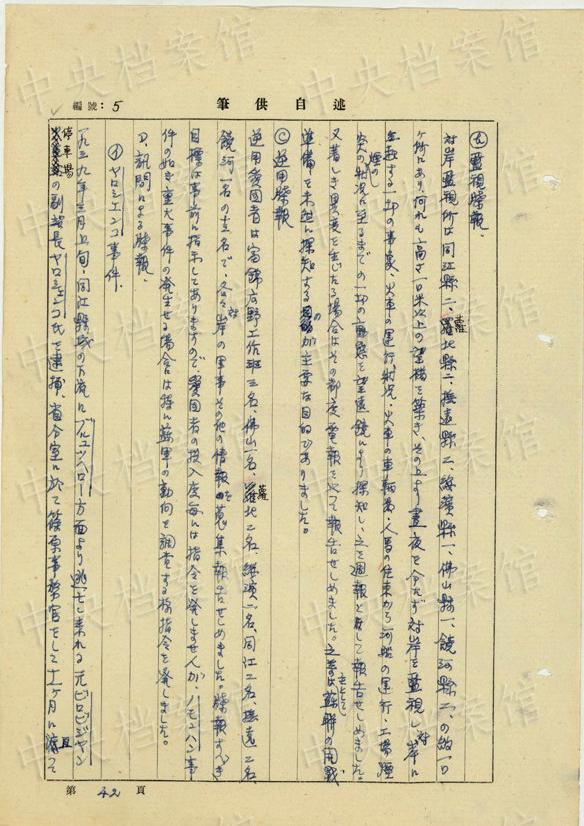 述自供筆
編號：5
(ろ) 監視牒報、
対岸監視所は同江縣二、蘿北縣二、撫遠縣二、綏濱縣一、佛山縣一、饒河縣二、の約一〇
ヶ所にあり、何れも高さ一〇米以上の望楼を築き、その上より昼夜を分たず対岸を監視し、対岸に
生起する一切の事象、火車の運行状況・火車の車輌数・人馬の往来から河船の運行・工場煙突の煙の
状況に至るまでの一切の動態を望遠鏡により探知し、之を週報として報告せしめました。
又著しき異変を生じたる場合はその都度電報を以て報告せしめました。之等は主として蘇聯の開戦
準備を未然に探知するのが主要な目的でありました。
(C) 逆用牒報
逆用愛国者は富錦広野工作班三名、佛山一名、蘿北二名、綏濱二名、同江二名、撫遠二名、
饒河一名の十三名で、各々対岸の軍事その他の情報を蒐集報告せしめました。牒報すべき
目標は事前に指示してありますので、愛国者の投入度毎には指令を発しませんが、ノモンハン事
件の如き重大事件の発生せる場合は特に蘇軍の動向を調査する様指令を発しました。
D、訊問による牒報、
(イ) ヤロシェンコ事件、
一九三九年三月上旬・同江縣城の下流にブルエツヘロー方面より逃亡し来れる元ビロビジヤン
停車場の副站長ヤロシェンコ氏を逮捕、省公室に於て篠原事務官をして十一ヶ月に亘つて
第 42 頁
中央档案馆